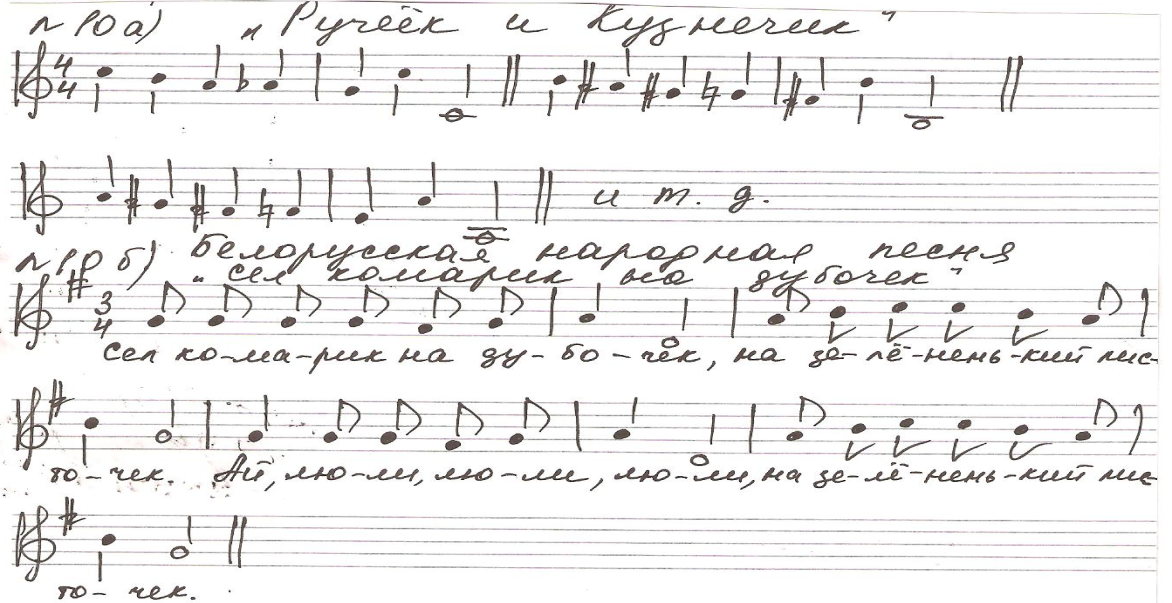 N10 а) „Ручеёк и Кузнечик"
4/4
и т. д.
N10 б) Белорусская народная песня
„Сел комарик на дубочек"
3/4
Сел ко-ма-рик на ду-бо-чек, на зе-лё-нень-кий лис-
то-чек. Ай, лю-ли, лю-ли, лю-ли, на зе-лё-нень-кий лис-
то-чек.